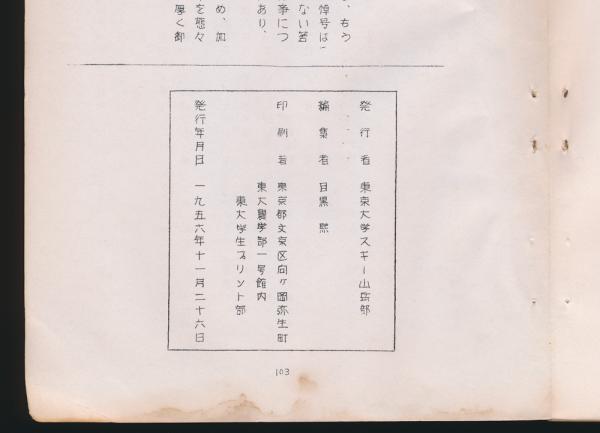 、ちう
悼号は
ない筈
争につ
あり、
め、加
を態々
厚く御
発行者 東京大学スキー山岳部
編集者 目黒熙
印刷者 東京都文京区向ヶ岡弥生町
東大農学部一号館内
東大学生プリント部
発行年月日 一九五六年十一月二十六日
103